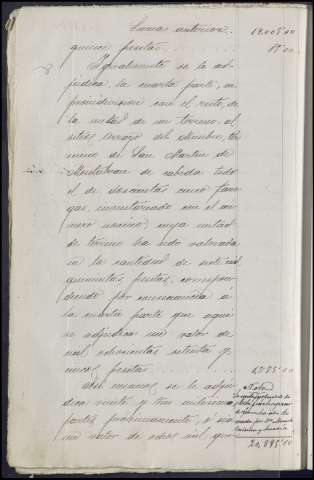 Suma anterior 19.005'00
quince pesetas. 15'00
Igualmente se le ad-
judica, la cuarta parte, en
proindivision con el resto, de
la mitad de un terreno, al
sitio, Arroyo del Membrillo, tér-
mino de San Martin de
Montalban de cabida todo
él de doscientas cinco fane-
gas, inventariado con el nú-
mero; cuya mitad
de terreno ha sido valorada
en la cantidad de siete mil
quinientas pesetas, correspon-
diendo por consecuencia á
la cuarta parte que aqui
se adjudica un valor de
mil ochocientas setenta y
cinco, pesetas 1.875'00
Asi mismo, se le adju-
dica veinte y tres milésimas
partes proximamente, ó sea
un valor de ocho mil que-
Nota
20.895'00